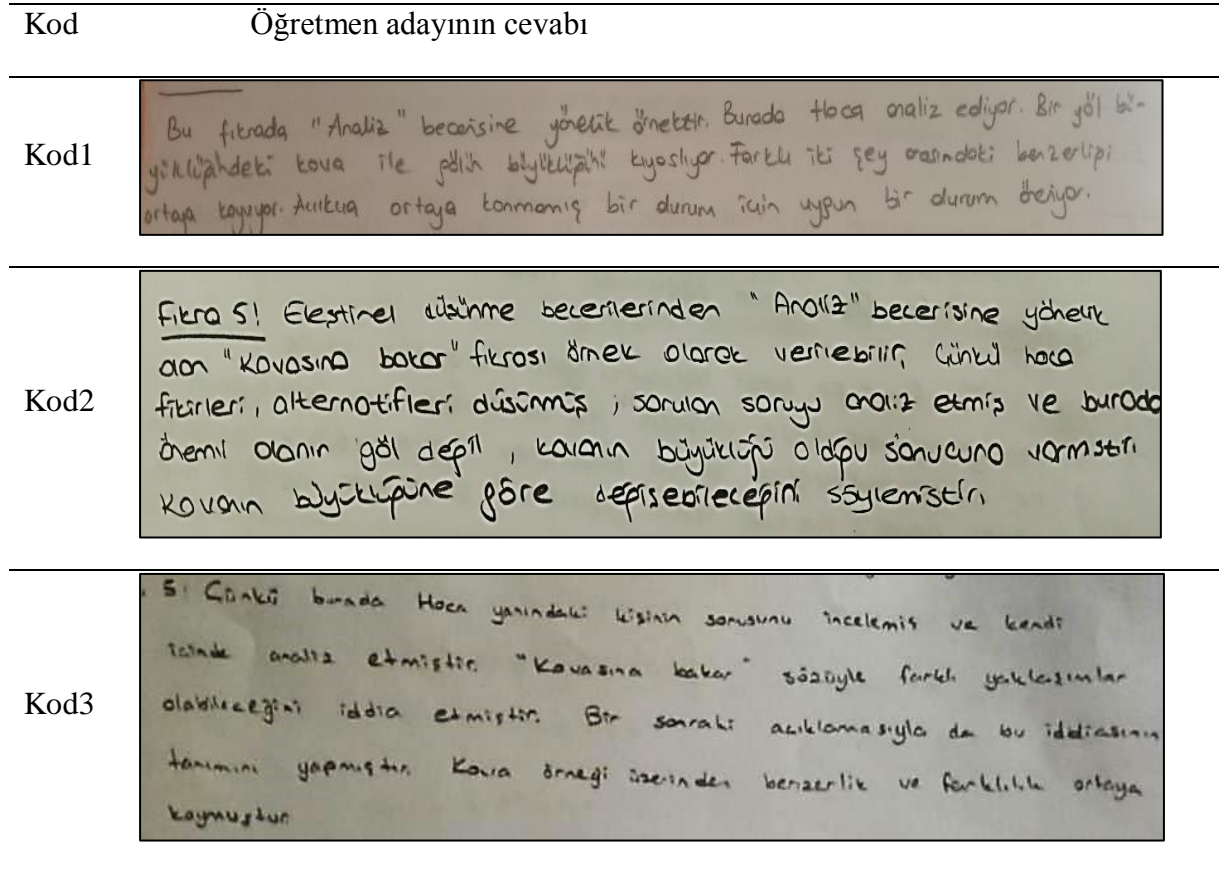 Kod Öğretmen adayının cevabı
Kod1
Bu fıkrada "Analiz" becerisine yönelik örnektir. Burada Hoca analiz ediyor. Bir göl bü-
yüklüğündeki kova ile gölün büyüklüğünü kıyaslıyor. Farklı iki şey arasındaki benzerliği
ortaya koyuyor. Açıkça ortaya konmamış bir durum için uygun bir durum öneriyor.
Kod2
Fıkra 5! Eleştirel düşünme becerilerinden "Analiz" becerisine yönelik
olan "Kovasına bakar" fıkrası örnek olarak verilebilir, Çünkü hoca
fikirleri, alternatifleri düşünmüş, sorulan soruyu analiz etmiş ve burada
önemli olanın göl değil, kovanın büyüklüğü olduğu sonucuna varmıştır.
Kovanın büyüklüğüne göre değişebileceğini söylemiştir.
Kod3
5: Çünkü burada Hoca yanındaki kişinin sorusunu incelemiş ve kendi
içinde analiz etmiştir. "Kovasına bakar" sözüyle farklı yaklaşımlar
olabileceğini iddia etmiştir. Bir sonraki açıklamasıyla da bu iddiasının
tanımını yapmıştır. Kova örneği üzerinden benzerlik ve farklılık ortaya
koymuştur.